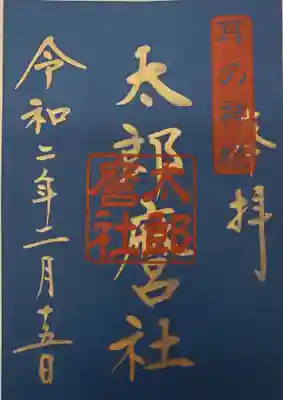 耳の神様
奉拝
太郎麿社
太郎麿社
令和二年二月十五日